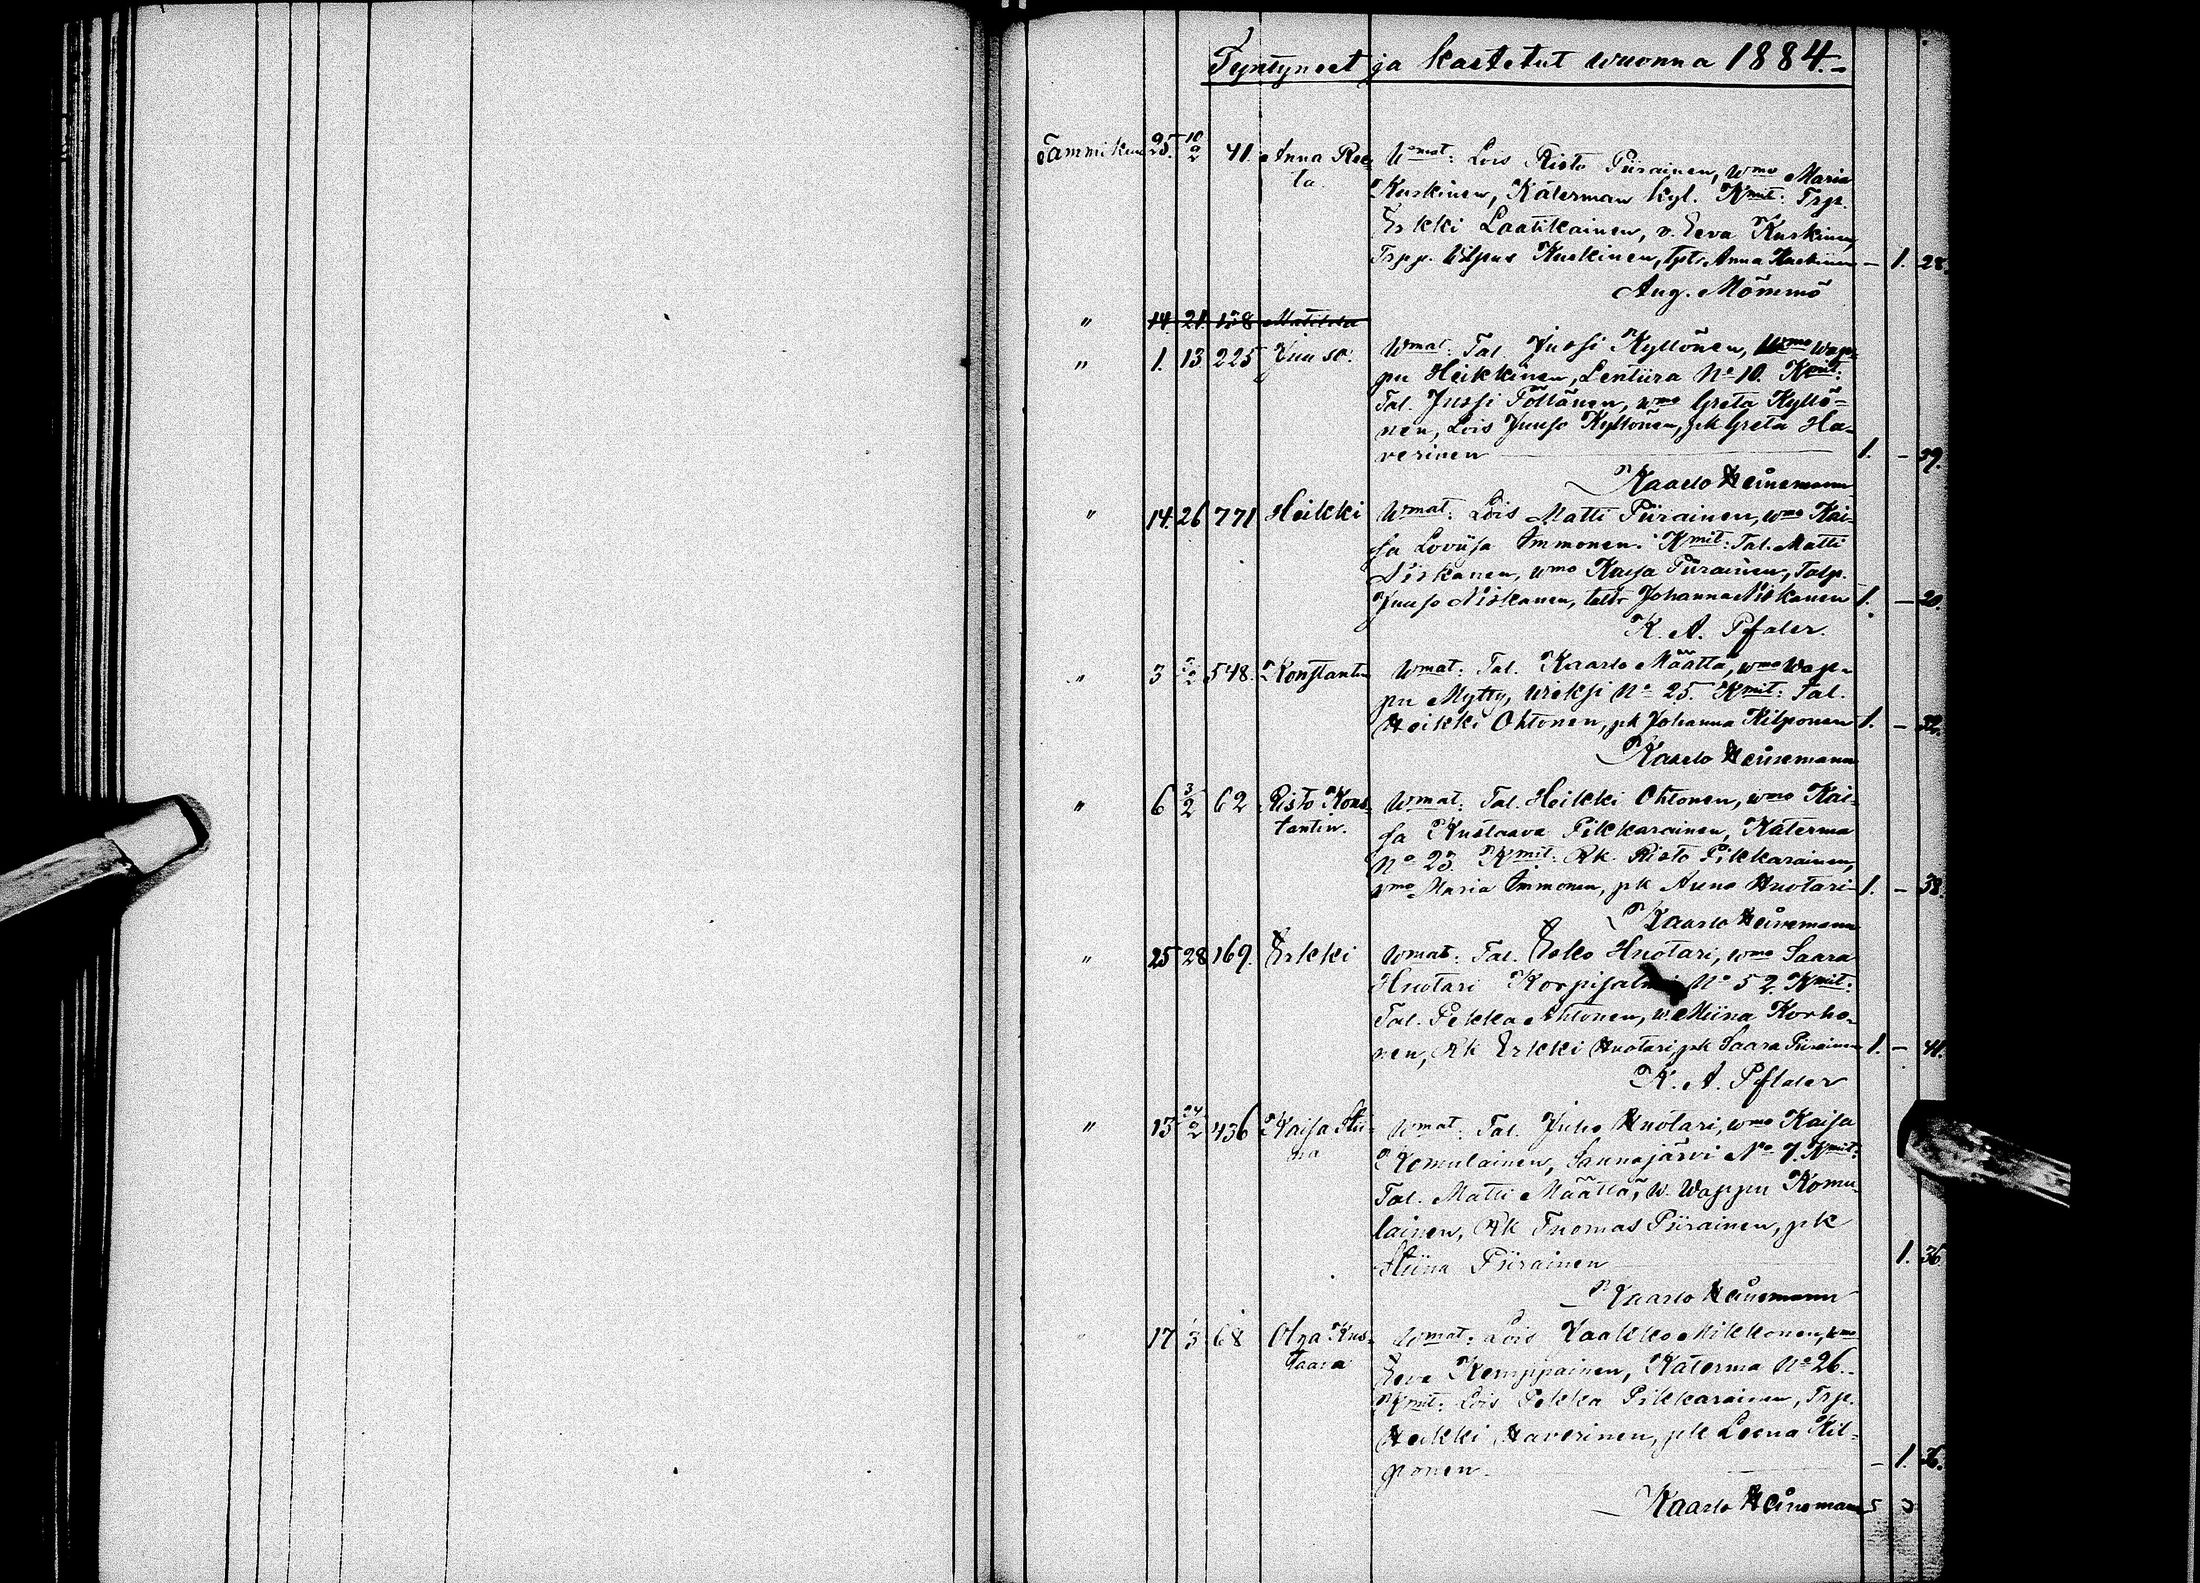 Syntyneet ja kastetut wuonna 1884.
Tammikuu 25. 10/2 41. Anna Ree- Wmat: Lois Risto Piirainen, wmo Maria
ta. Kuskinen, Katerman kyl. Kmit: Trp.
Erkki Laatikainen, v. Eeva Kuskinen,
Trpp. Kuskinen, tpts Anna Kuskinen - 1. 28.
Aug. Mömmö
" 14. 21. 158 Matilda
" 1. 13 225 Juuso. Wmat: Tal. Jussi Kyllönen, wmo Wap-
pu Heikkinen, Lentiira No 10. Kmit:
Tal. Jussi Töllänen, wmo Greta Kyllö-
nen, Lois Juuso Kyllönen, pk Greta Ha-
verinen 1. - 39.
Kaarlo Heinemann
" 14. 26 771 Heikki Wmat: Lois Matti Piirainen, wmo Kai-
sa Loviisa Immonen. Kmit: Tal. Matti
Niskanen, wmo Kaisa Piirainen, Talp.
Juuso Niskanen, taltr Johanna Niskanen 1. - 20.
K. A. Pfaler.
" 3 5/2 548. Konstantin Wmat: Tal. Kaarlo Määttä, wmo Wap-
pu Mytty, Wieksi No 25. Kmit: Tal.
Heikki Ohtonen, pk Johanna Kilponen 1. - 32.
Kaarlo Heinemann
" 6 3/2 62 Risto Kons- Wmat: Tal. Heikki Ohtonen, wmo Kai-
tantin. sa Kustaava Pikkarainen, Katerma
No 23. Kmit: Rk. Risto Pikkarainen,
vmo Maria Immonen, pk Anna Huotari 1. - 38.
Kaarlo Heinemann
" 25 28 169. Erkki Wmat: Tal. Esko Huotari, wmo Saara
Huotari Korpisalmi No 52. Kmit:
Tal. Pekka Ahtonen, v. Miina Korho-
nen, Rk Erkki Huotari, pk Saara Piirainen 1. - 41.
K. A. Pfaler
" 15 24/2 436 Kaisa Stii- Wmat: Tal. Juho Huotari, wmo Kaisa
na Komulainen, Saunajärvi No 7. Kmit:
Tal. Matti Määttä, w. Wappu Komu-
lainen, Rk Tuomas Piirainen, pk
Stiina Piirainen 1. 36
Kaarlo Heinemann
" 17 1/3 68 Olga Kus- Wmat: Lois Jaakko Mikkonen, wmo
taava Eeva Kemppainen, Katerma No 26.
Kmit: Lois Pekka Pikkarainen, Trp.
Heikki Haverinen, pk Leena Kil-
ponen. - 1. 36.
Kaarlo Heinemann 5 3